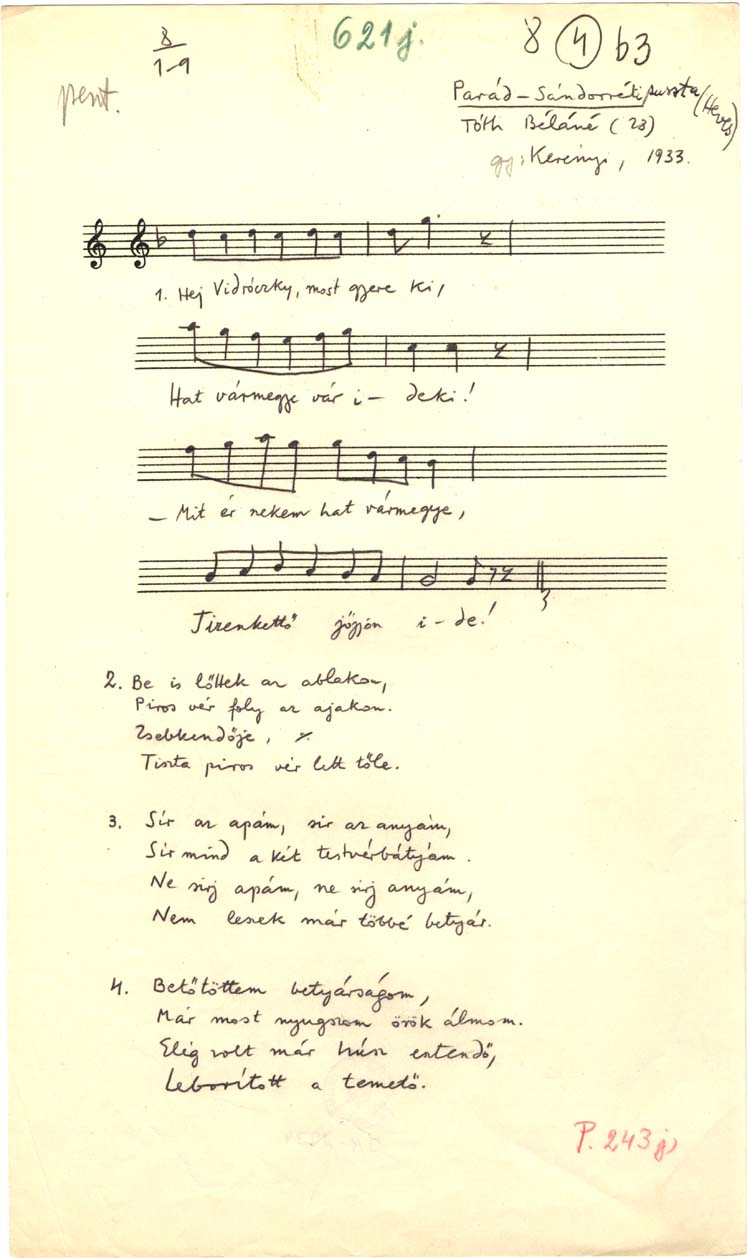 8
1-9
621j.
8 4 b3
pent.
Parád - Sándorréti puszta (Heves)
Tóth Béláné (23)
gy: Kerényi, 1933.
1. Hej Vidróczky, most gyere ki,
Hat vármegye vár i- deki!
- Mit ér nekem hat vármegye,
Tizenkettő jőjjön i-de!
2. Be is lőttek az ablakon,
Piros vér foly az ajakon.
Zsebkendője, ٪
Tiszta piros vér lett tőle.
3. Sír az apám, sír az anyám,
Sír mind a két testvérbátyám.
Ne sírj apám, ne sírj anyám,
Nem leszek már többé betyár.
4. Betőtöttem betyárságom,
Már most nyugszom örök álmom.
Elég volt már húsz esztendő,
Leborított a temető.
P. 243j)